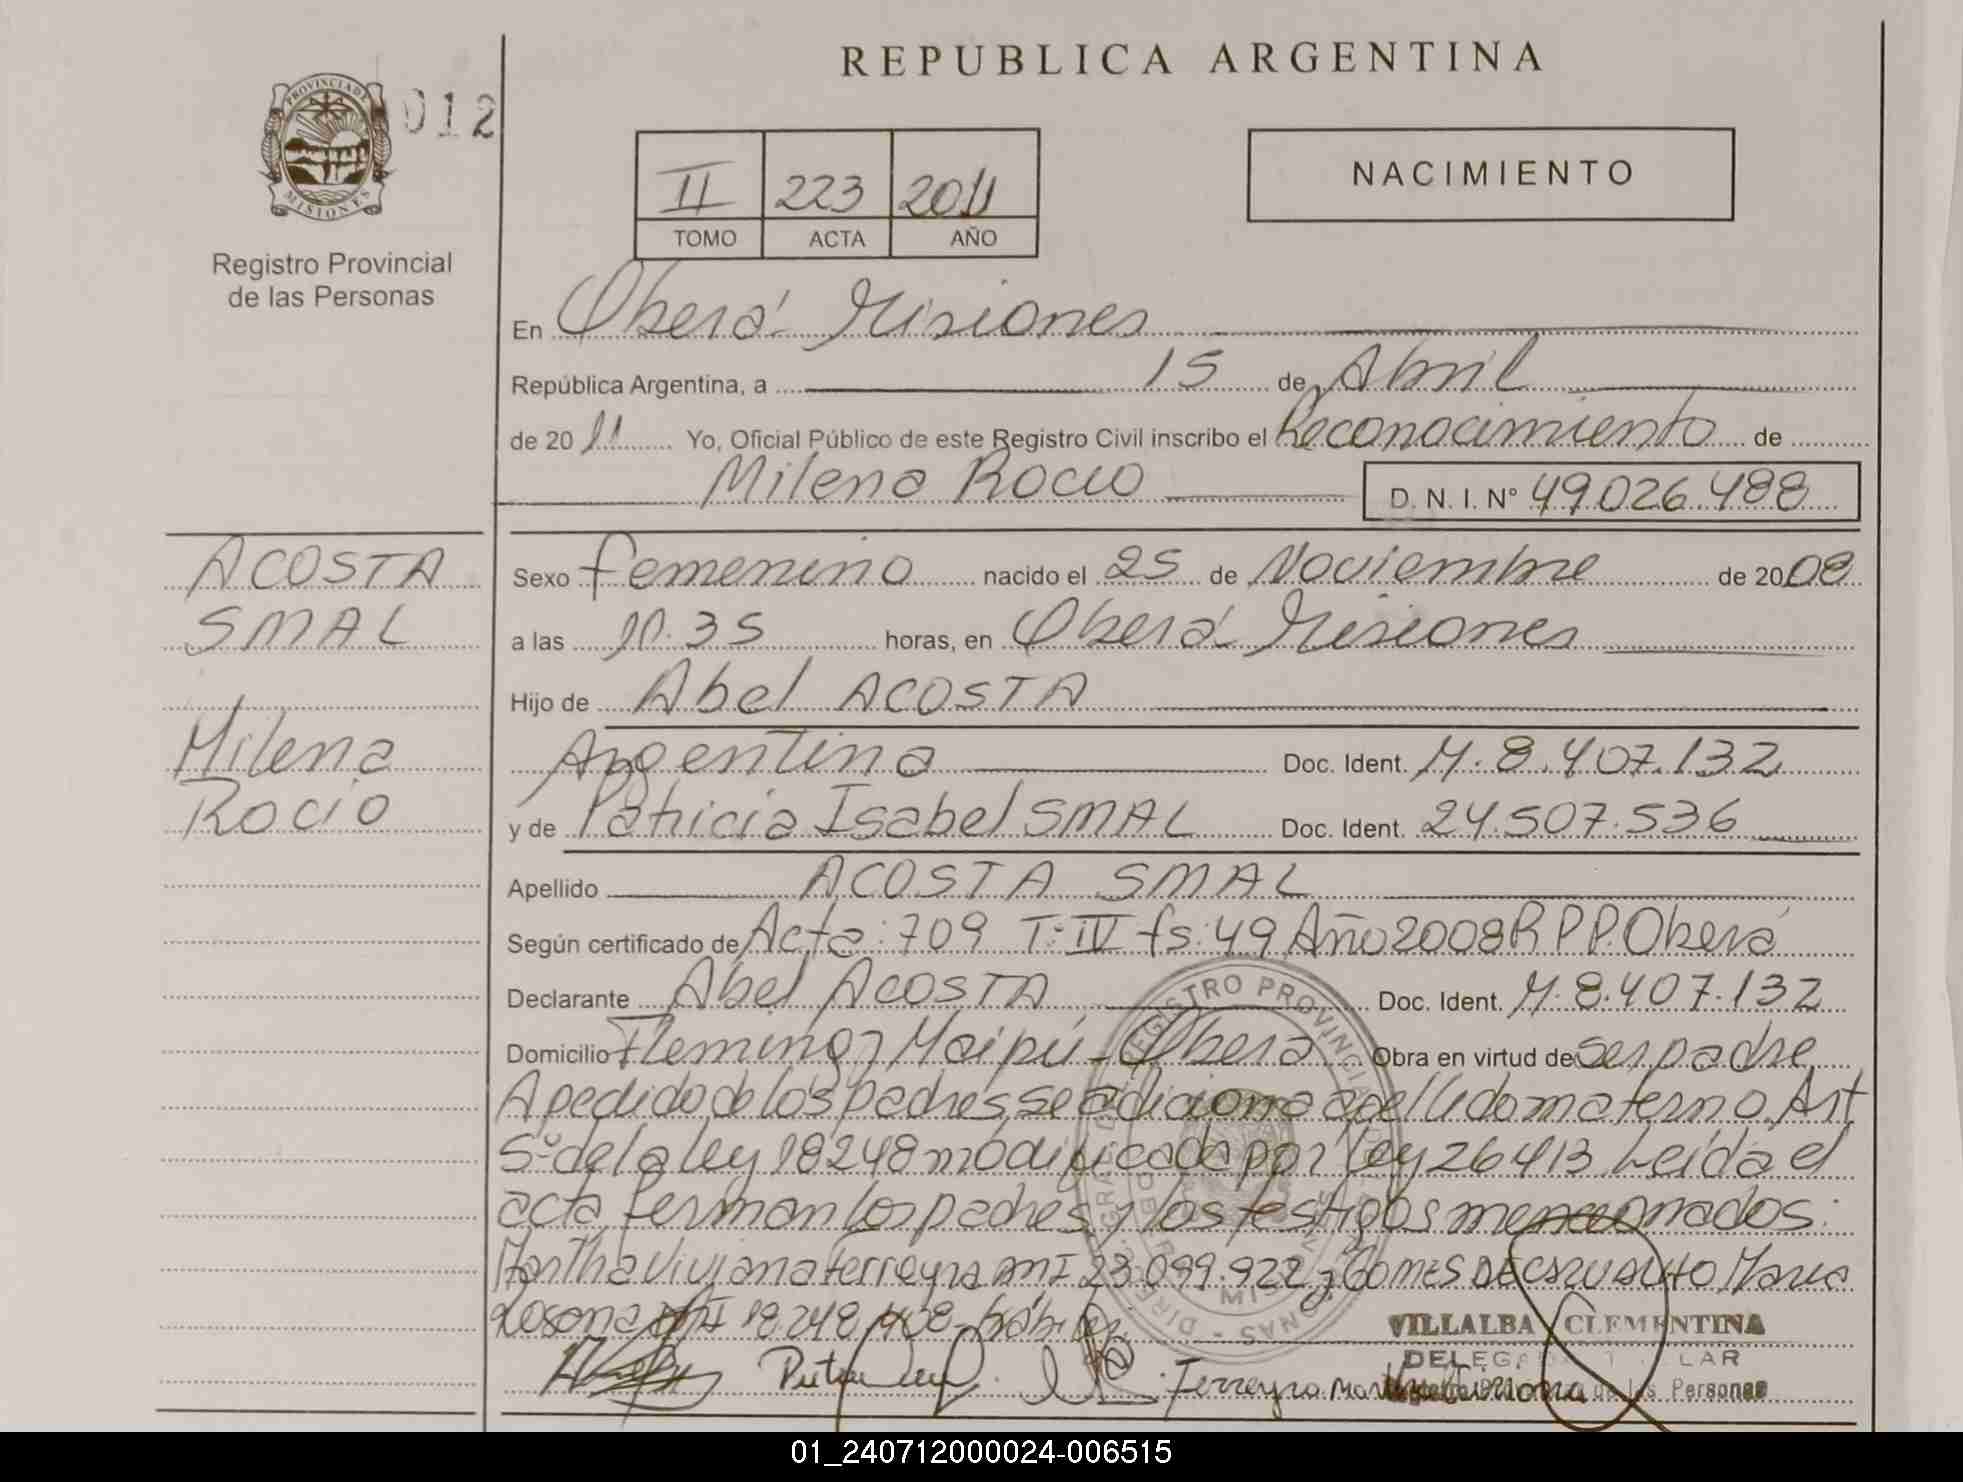 REPUBLICA ARGENTINA
PROVINCIA DE
MISIONES
012
Registro Provincial
de las Personas
II 223 2011
TOMO ACTA AÑO
NACIMIENTO
En Oberá Misiones
República Argentina, a 15 de Abril
de 20 11 Yo, Oficial Público de este Registro Civil inscribo el Reconocimiento de
Milena Rocio D. N. I. N° 49.026.488
ACOSTA
SMAL
Milena
Rocio
Sexo femenino nacido el 25 de Noviembre de 2008
a las 10.35 horas, en Oberá Misiones
Hijo de Abel ACOSTA
Argentina Doc. Ident. M. 8.407.132
y de Patricia Isabel SMAL Doc. Ident. 24.507.536
Apellido ACOSTA SMAL
Según certificado de Acta: 709 T: IV fs: 49 Año 2008 R.P.P. Oberá
Declarante Abel ACOSTA Doc. Ident. M. 8.407.132
Domicilio Fleming y Maipú - Oberá Obra en virtud de ser padre
A pedido de los padres se adiciona apellido materno Art
5° de la ley 18248 modificada por ley 26413 Leída el
acta firman los padres y los testigos mencionados:
Martha Viviana Ferreyra MI 23.099.922 y GOMES DE Maria
Rosana MI 18.248.408
VILLALBA CLEMENTINA
Ferreyra
de las Personas
REGISTRO PROVINCIAL
MISIONES
01_240712000024-006515